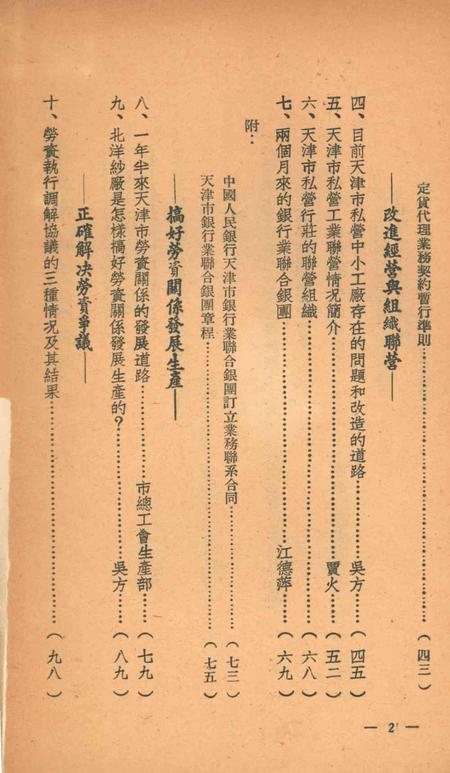 定貨代理業務契約暫行準則……（四三）
——改進經營與組織聯營——
四、目前天津市私營中小工廠存在的問題和改造的道路……吳方……（四五）
五、天津市私營工業聯營情況簡介……賈火……（五二）
六、天津市私營行莊的聯營組織……（六八）
七、兩個月來的銀行業聯合銀團……江德萍……（六九）
附：
中國人民銀行天津市銀行業聯合銀團訂立業務聯系合同……（七三）
天津市銀行業聯合銀團章程……（七五）
——搞好勞資關係發展生產——
八、一年半來天津市勞資關係的發展道路……市總工會生產部……（七九）
九、北洋紗廠是怎樣搞好勞資關係發展生產的？……吳方……（八九）
——正確解决勞資爭議——
十、勞資執行調解協議的三種情況及其結果……（九八）
— 2 —